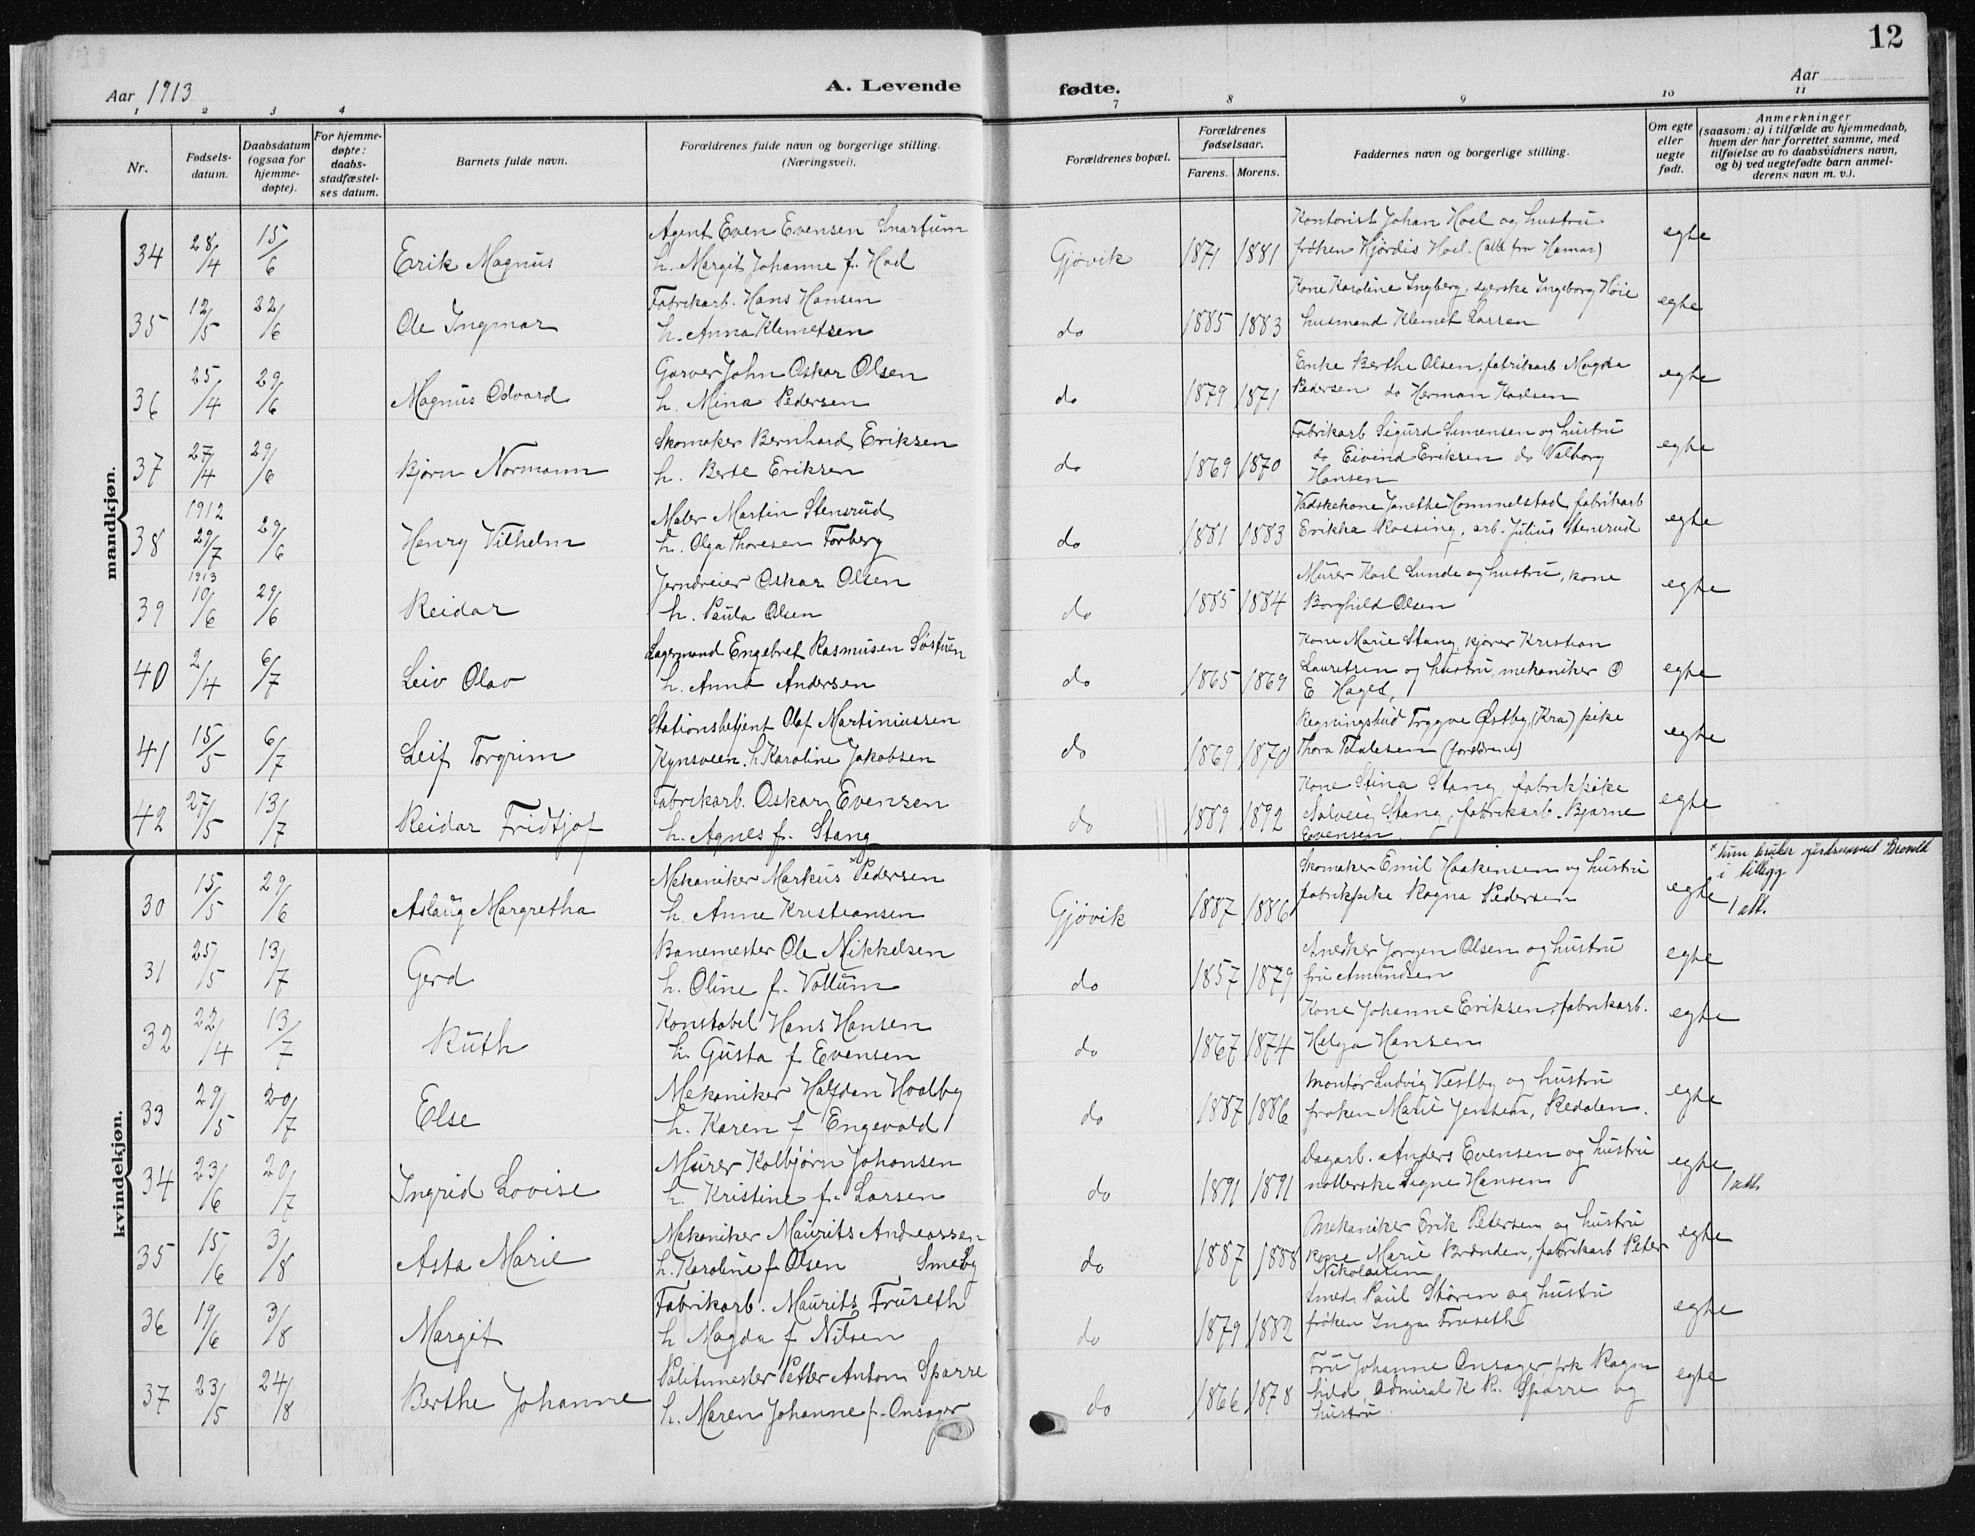 12
Aar 1913
A. Levende fødte.
Aar
1 2 3 4 7 8 9 10 11
Nr.
Fødsels-
datum.
Daabsdatum
(ogsaa for
hjemme-
døpte).
For hjemme-
døpte:
daabs-
stadfæstel-
ses datum.
Barnets fulde navn.
Forældrenes fulde navn og borgerlige stilling.
(Næringsvei).
Forældrenes bopæl.
Forældrenes
fødselsaar.
Farens. Morens.
Faddernes navn og borgerlige stilling.
Om egte
eller
uegte
født.
Anmerkninger
(saasom: a) i tilfælde av hjemmedaab,
hvem der har forrettet samme, med
tilføielse av to daabsvidners navn,
og b) ved uegtefødte barn anmel-
derens navn m. v.).
mandkjøn.
Agent Even Evensen Snartum Kontorist Johan Hoel og hustru
34 28/4 15/6 Erik Magnus h. Margit Johanne f. Hoel Gjøvik 1871 1881 frøken Hjørdis Hoel. (alle fra Hamar) egte
Fabrikarb. Hans Hansen Kone Karoline Ingberg, syerske Ingeborg Høie
35 12/5 22/6 Ole Ingmar h. Anna Klemetsen do 1885 1883 husmand Klemet Larsen egte
Garver John Oskar Olsen Enke Berthe Olsen, fabrikarb Magda
36 25/4 29/6 Magnus Odvard h. Mina Pedersen do 1879 1871 Pedersen do Herman Karlsen egte
Skomaker Bernhard Eriksen Fabrikarb Sigurd Simensen og hustru
37 27/4 29/6 Bjørn Normann h. Berte Eriksen do 1869 1870 do Eivind Eriksen do Valborg egte
Hansen
1912 Maler Martin Stensrud Vadskekone Janethe Hommelstad, fabrikarb
38 29/7 29/6 Henry Vilhelm h. Olga Thoresen Forberg do 1881 1883 Erikka Kossing, arb. Julius Stensrud egte
1913 Jerndreier Oskar Olsen Murer Karl Lunde og hustru, kone
39 10/6 29/6 Reidar h. Paula Olsen do 1885 1884 Borghild Olsen egte
Lagermand Engebret Rasmusen Søstuen Kone Marie Stang, kjører Kristian
40 2/4 6/7 Leiv Olav h. Anna Andersen do 1865 1869 Lauritsen og hustru, mekaniker O egte
E Haget,
Stationsbetjent Olaf Martiniussen Regningsbud Trygve Østby, (Kra) pike
41 15/5 6/7 Leif Torgrim Kynsveen. h. Karoline Jakobsen do 1869 1870 Thora egte
Fabrikarb. Oskar Evensen Kone Stina Stang, fabrikpike
42 27/5 13/7 Reidar Fridtjof h. Agnes f. Stang do 1889 1892 Solveig Stang, fabrikarb. Bjarne egte
Evensen
kvindekjøn.
Mekaniker Markus Pedersen Skomaker Emil Haakensen og hustru
30 15/5 29/6 Aslaug Margretha h. Anne Kristiansen Gjøvik 1887 1886 fabrikpike Ragna Pedersen egte
x hun bruker gaardsnavnet
i tillegg
1 att.
Banemester Ole Mikkelsen Jørgen Olsen og hustru
31 25/5 13/7 Gerd h. Oline f. Vollum do 1857 1879 fru Amundsen egte
Konstabel Hans Hansen Kone Johanne Eriksen, fabrikarb.
32 22/4 13/7 Ruth h. Gusta f Evensen do 1867 1874 Helga Hansen egte
Mekaniker Halfdan Hoelby Montør Ludvig Vestby og hustru
33 29/5 20/7 Else h. Karen f Engevold do 1887 1886 frøken Marie Jensen, Redalen. egte
Murer Kolbjørn Johansen Dagarb. Anders Evensen og hustru
34 23/6 20/7 Ingrid Lovise h. Kristine f. Larsen do 1891 1891 Signe Hansen egte 1 att.
Mekaniker Maurits Andreassen Mekaniker Erik Petersen og hustru
35 15/6 3/8 Asta Marie h. Karoline f Olsen Smeby do 1887 1888 kone Marie Brænden, fabrikarb Peter egte
Nikolaisen
Fabrikarb. Maurits Fruseth Smed Paul Støren og hustru
36 19/6 3/8 Margit h Magda f Nilsen do 1879 1882 frøken Inga Fruseth egte
Politimester Petter Anton Sparre Fru Johanne Onsager, frk Ragn
37 23/5 24/8 Berthe Johanne h. Maren Johanne f. Onsager do 1866 1878 hild, admiral K. R. Sparre og egte
hustru